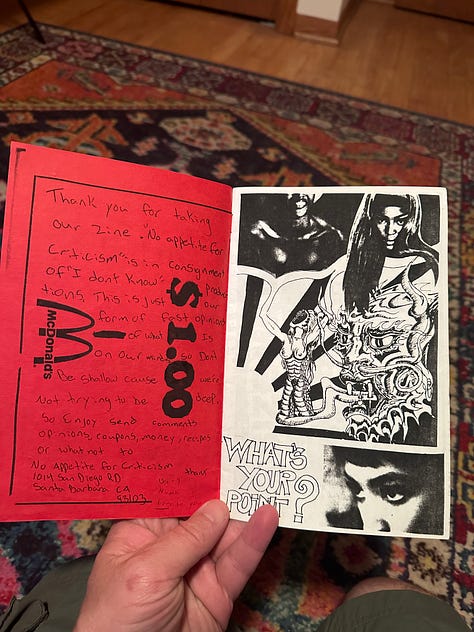 Thank you for taking
our zine. "No appetite for
Criticism" is in consignment
of "I dont Know" produc
tions. This is just our
form of fast opinions
of what is
on our minds so Dont
Be shallow cause we're
Not trying to be deep.
So Enjoy send comments
opinions, coupons, money, recipes
or whatnot to
No Appetite for Criticism
1014 San Diego RD
Santa Barbara CA
93103
thanx
McDonald's
$1.00
WHAT'S
YOUR
POINT?